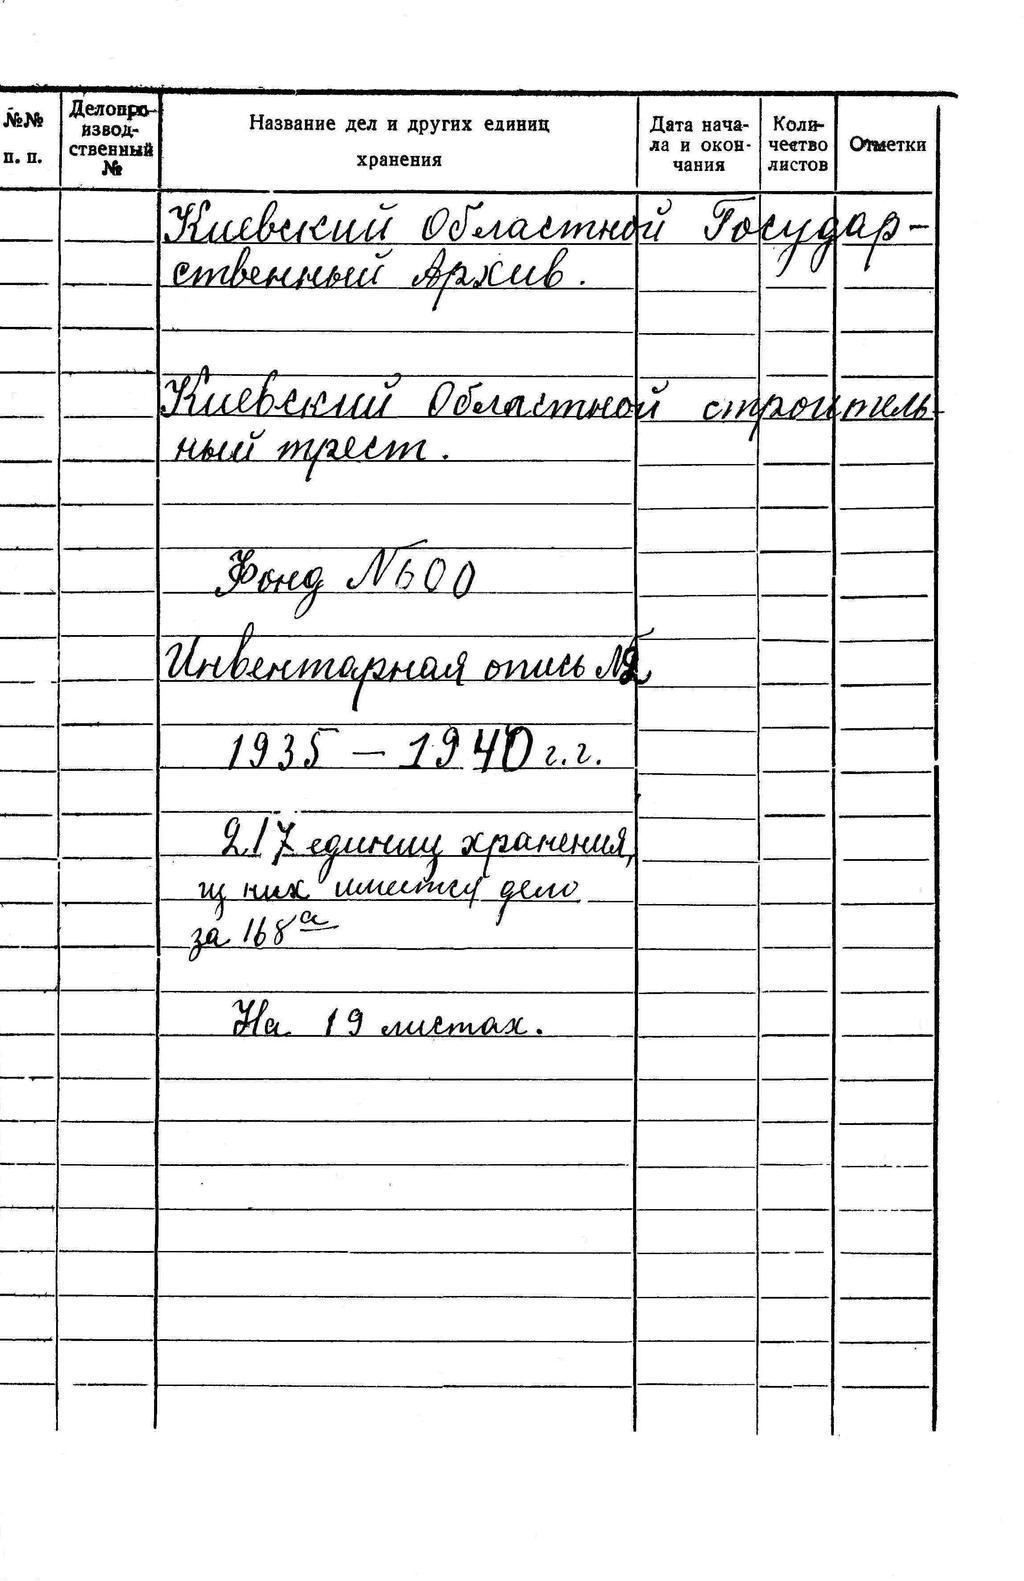 №№
п. п.
Делопро-
извод-
ственный
№
Название дел и других единиц
хранения
Дата нача-
ла и окон-
чания
Коли-
чество
листов
Отметки
Киевский Областной Государ-
ственный Архив.
Киевский Областной строитель-
ный трест.
Фонд №600
Инвентарная опись №2
1935 – 1940 г.г.
217 единиц хранения,
из них имеется дело
за 168а
На 19 листах.